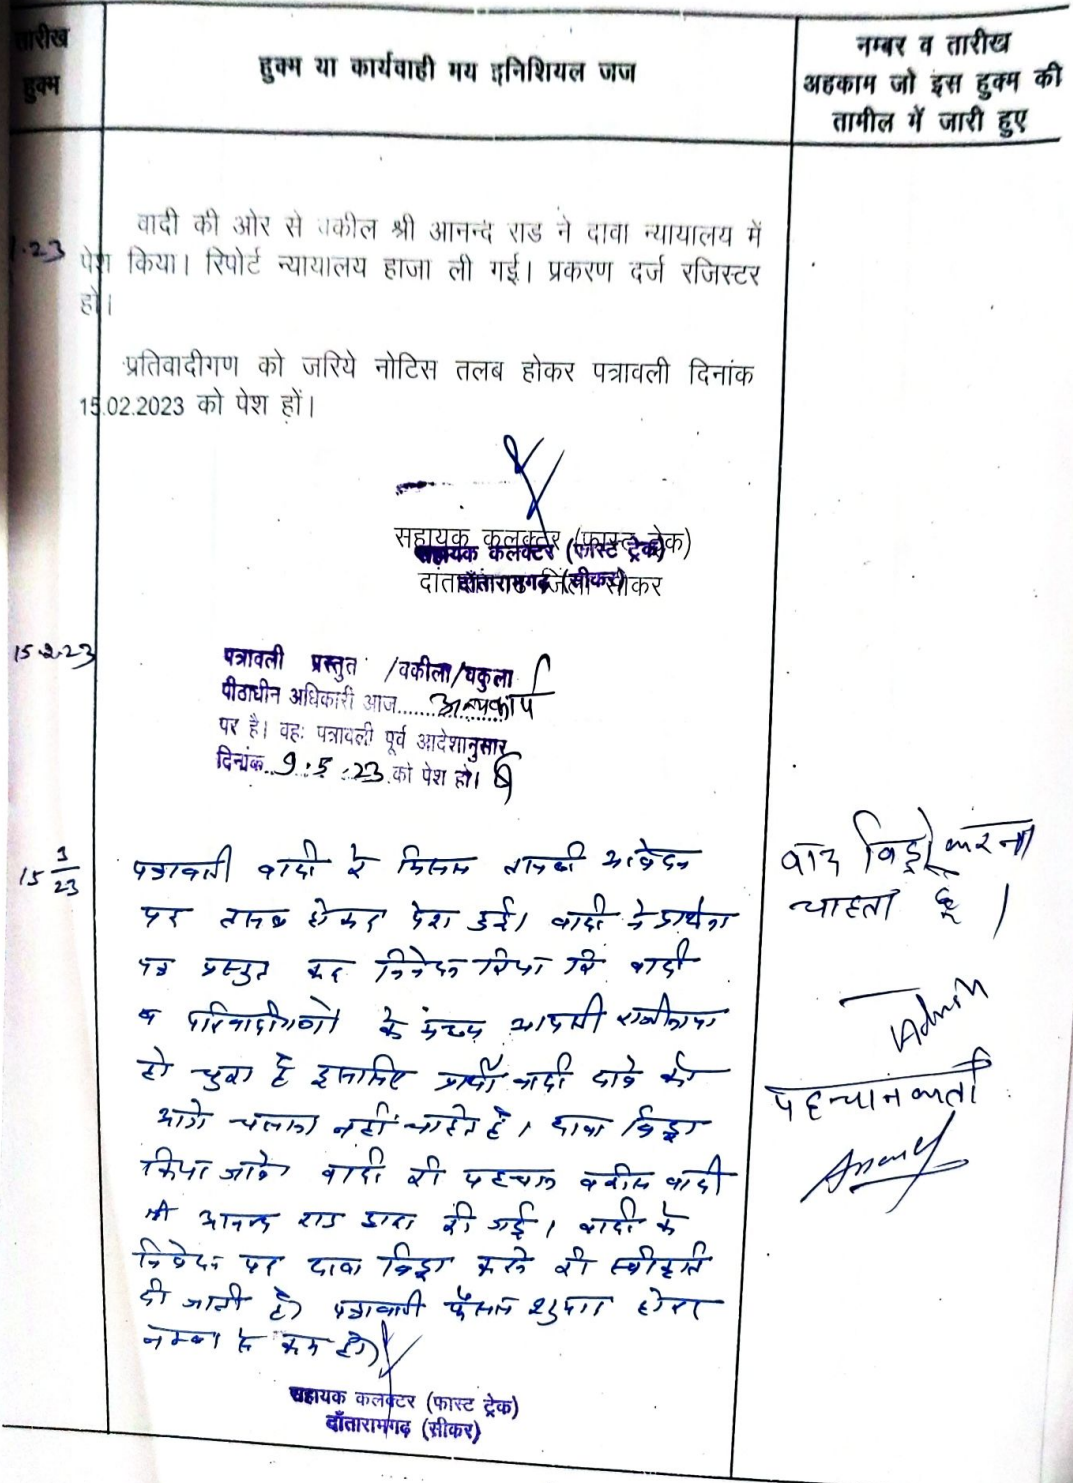 तारीख
हुक्म
हुक्म या कार्यवाही मय इनिशियल जज
नम्बर व तारीख
अहकाम जो इस हुक्म की
तामील में जारी हुए
.23
वादी की ओर से वकील श्री आनन्द राड ने दावा न्यायालय में
पेश किया। रिपोर्ट न्यायालय हाजा ली गई। प्रकरण दर्ज रजिस्टर
हो।
प्रतिवादीगण को जरिये नोटिस तलब होकर पत्रावली दिनांक
15.02.2023 को पेश हों।
सहायक कलक्टर (फास्ट ट्रेक)
सहायक कलक्टर (फास्ट ट्रेक)
दांतारामगढ जिला सीकर
दाँतारामगढ़ (सीकर)
15.2.23
पत्रावली प्रस्तुत /वकीला/वकुला
पीठाधीन अधिकारी आज.......अन्यकार्य
पर है। वहः पत्रावली पूर्व आदेशानुसार
दिनांक..9.5.23.को पेश हो।
15 3/23
पत्रावली वादी के तलबी आवेदन
पर तलब होकर पेश हुई। वादी ने प्रार्थना
पत्र प्रस्तुत कर निवेदन किया कि वादी
व प्रतिवादीगणों के मध्य आपसी राजीनामा
हो चुका है इसलिए प्रार्थी वादी दावे को
आगे चलाना नहीं चाहते है। दावा विड्रा
किया जावे। वादी की पहचान वकील वादी
श्री आनन्द राड द्वारा की गई। वादी के
निवेदन पर दावा विड्रा करने की स्वीकृति
दी जाती है। पत्रावली फैसल शुमार होकर
नम्बर से कम हो।
सहायक कलक्टर (फास्ट ट्रेक)
दाँतारामगढ़ (सीकर)
वाद विड्रो करना
चाहता हूँ।
पहचानकर्ता
Anand